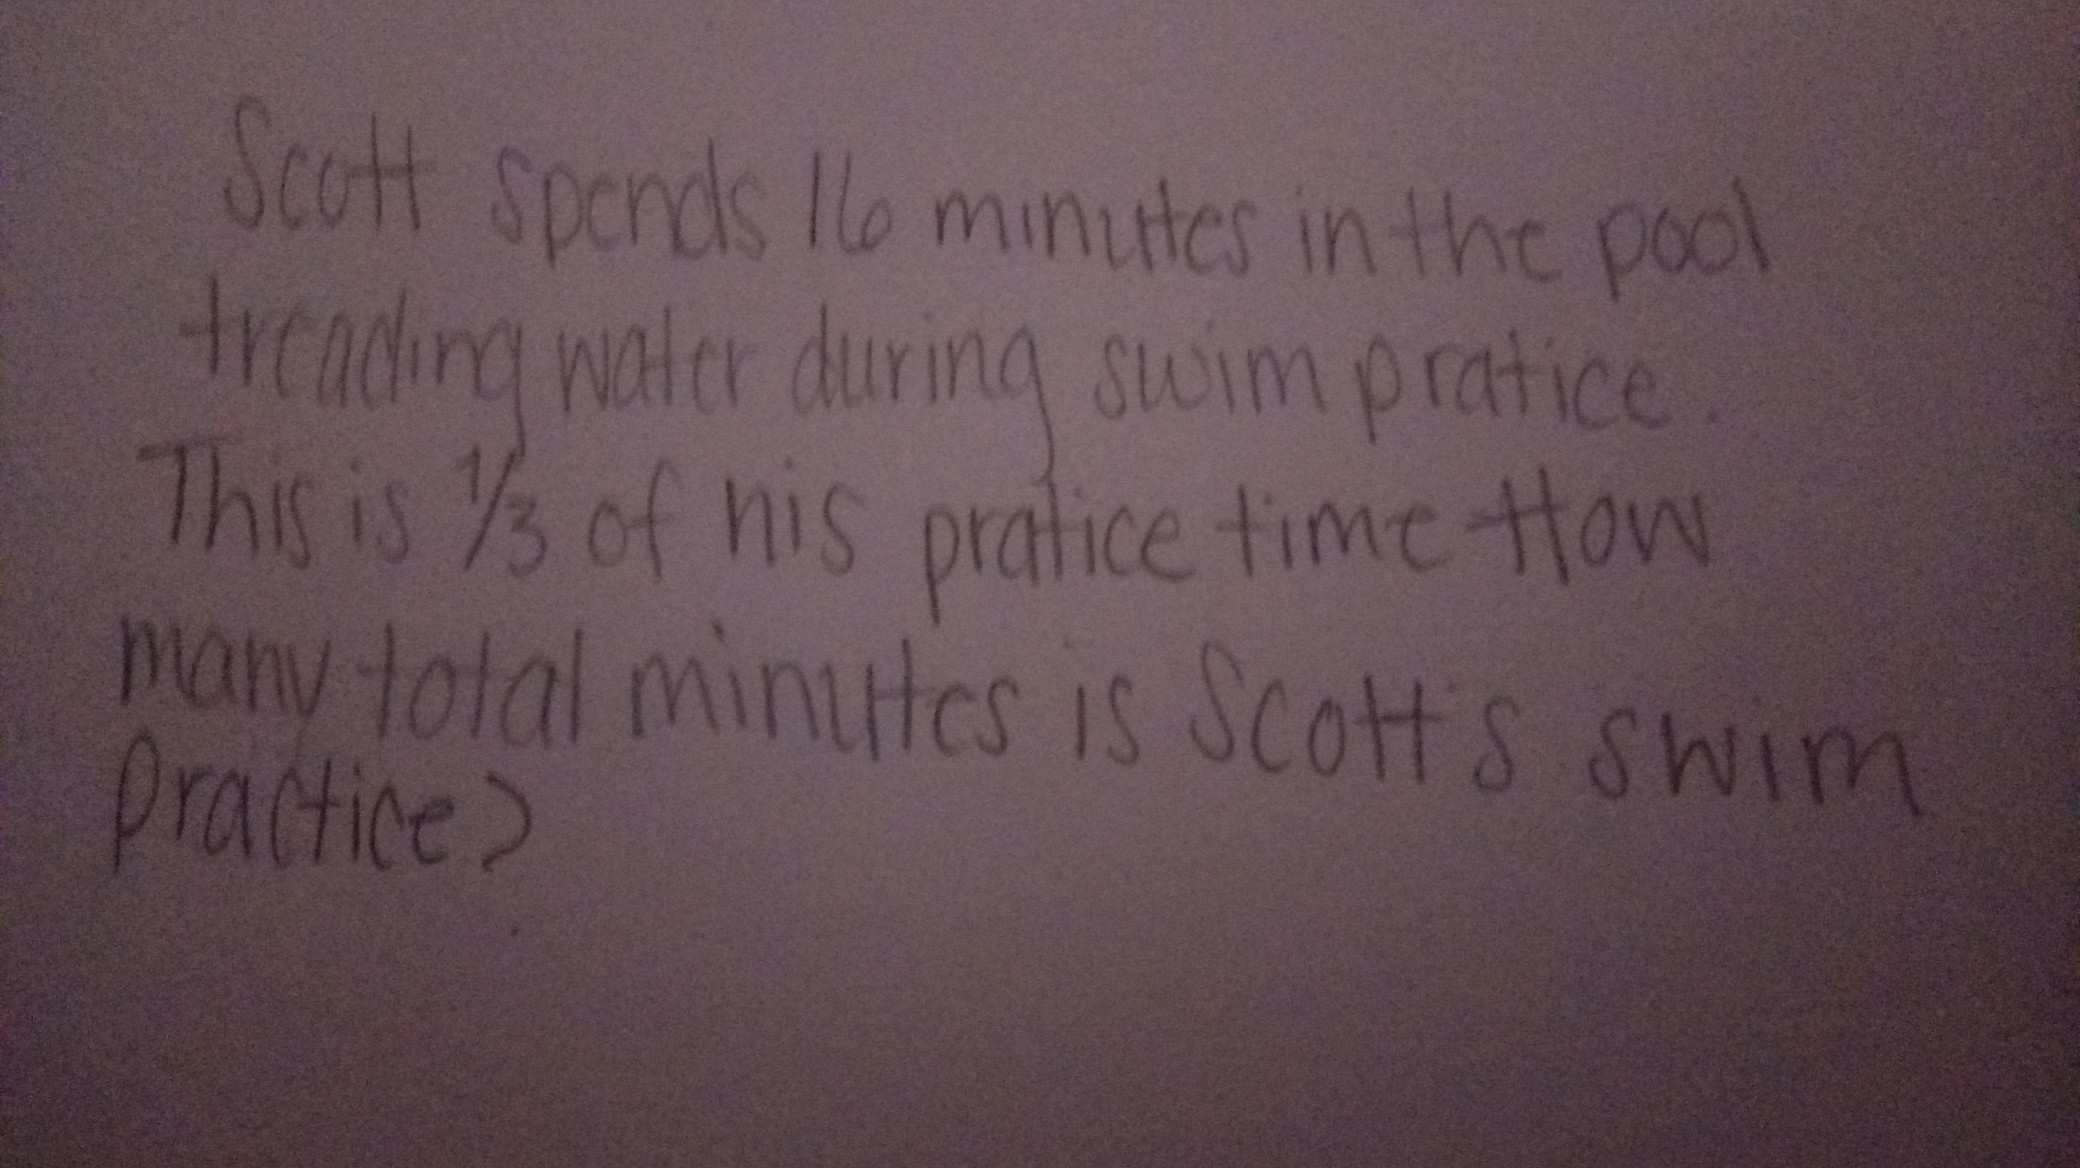 Scott spends 16 minutes in the pool
treading water during swim pratice.
This is 1/3 of his pratice time How
many total minutes is Scott's swim
Practice?